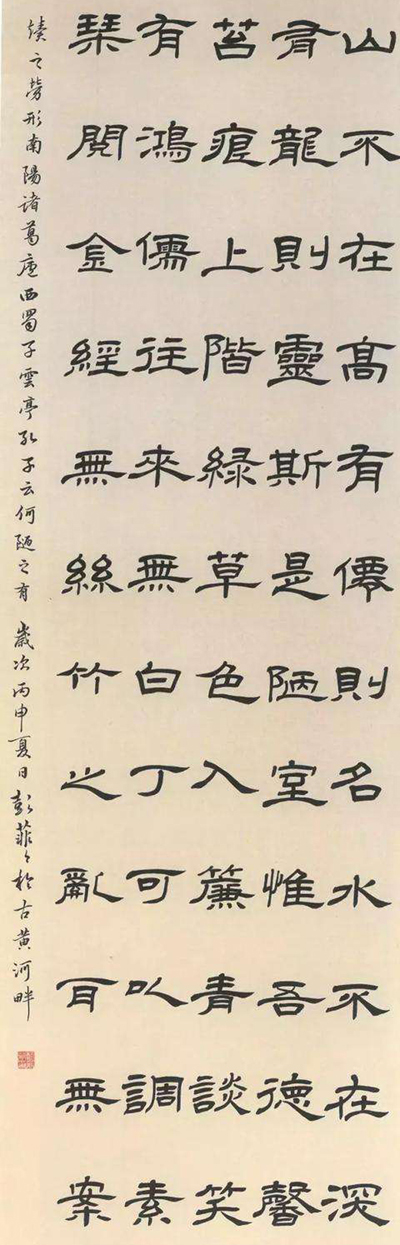 山不在髙有僊則名水不在深
有龍則靈斯是陋室惟吾德馨
苔痕上階緑草色入簾青談笑
有鴻儒往來無白丁可以調素
琹閱金經無絲竹之亂耳無案
牘之勞形南陽諸葛廬西蜀子雲亭孔子云何陋之有 歲次丙申夏日彭菲々於古黄河畔